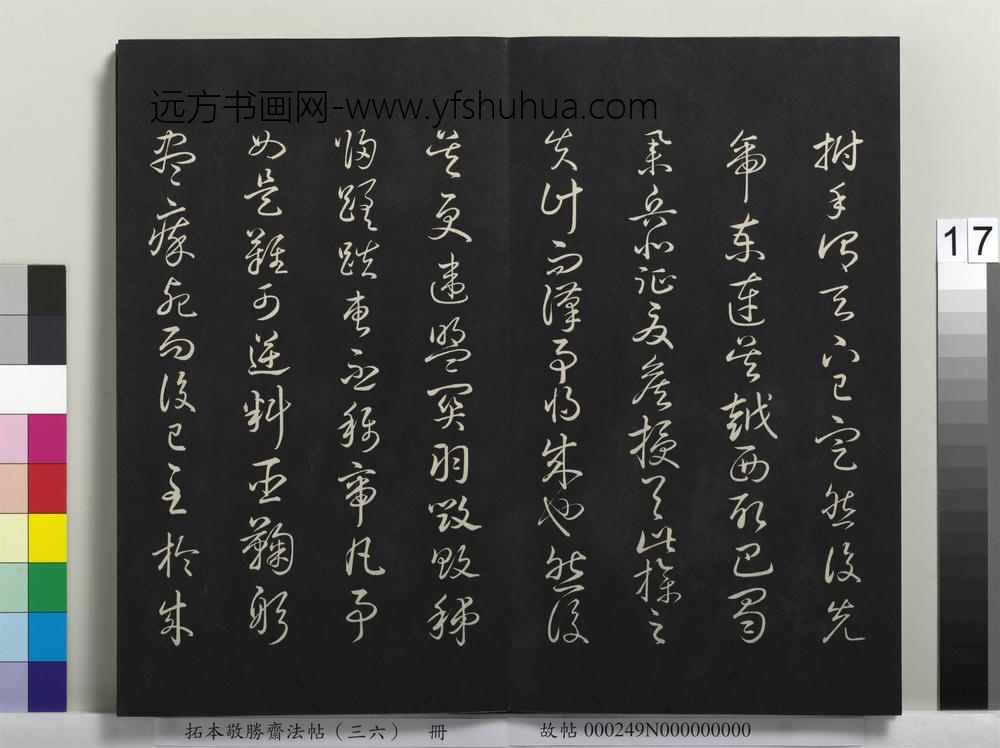 远方书画网-www.yfshuhua.com
拊手謂天下已定然後先
帝東連吳越西取巴蜀
舉兵北征夏侯授首此操之
失計而漢事將成也然後
吳更違盟關羽毀敗秭
歸蹉跌曹丕稱帝凡事
如是難可逆料臣鞠躬
盡瘁死而後已至於成
17
拓本敬勝齋法帖（三六） 冊 故帖 000249N000000000